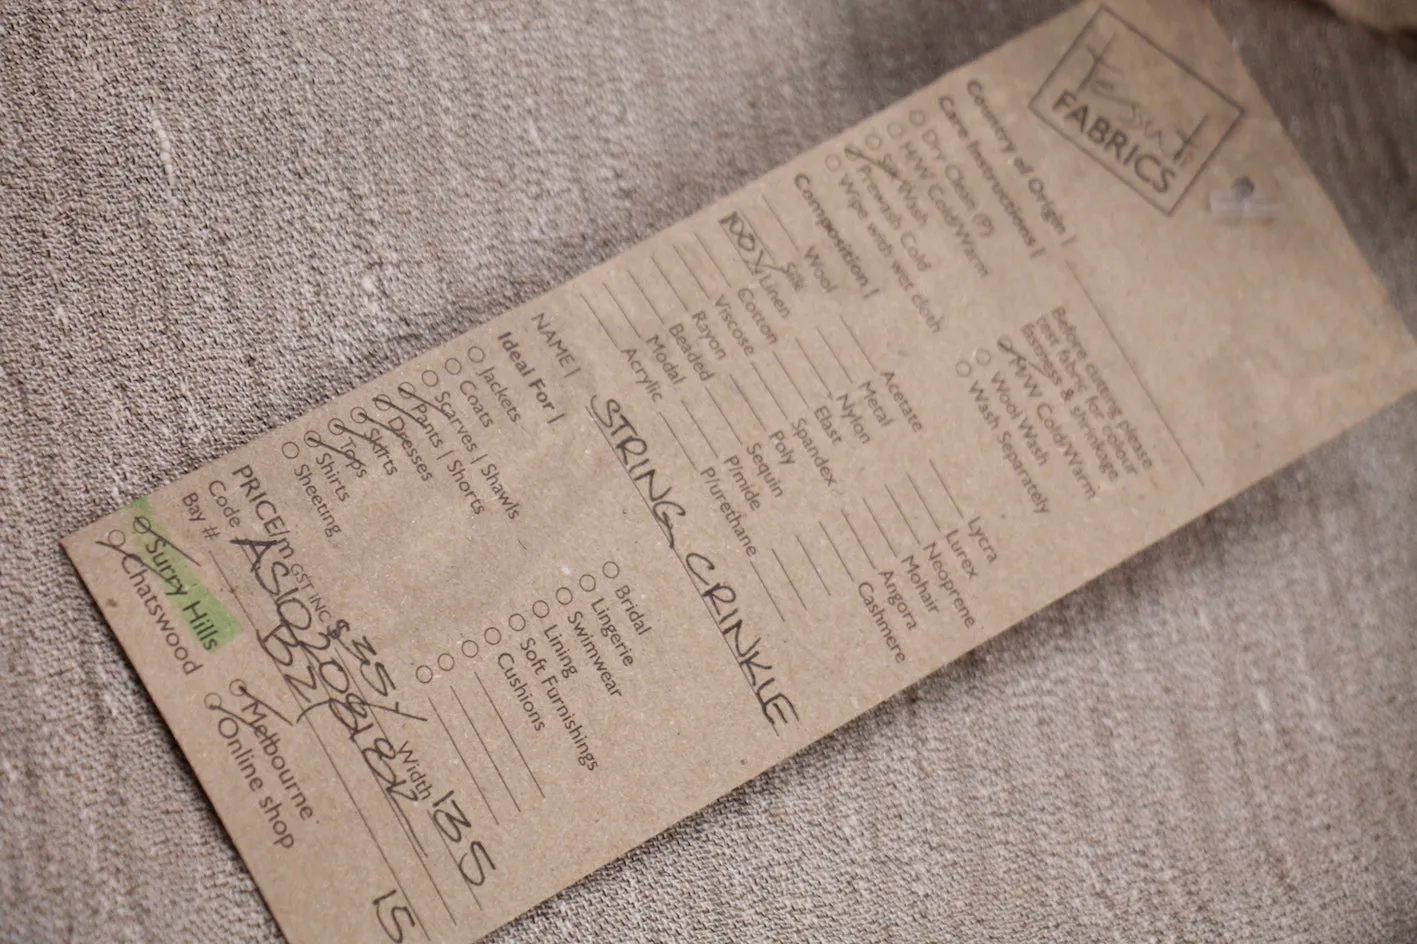 Tessuti
FABRICS
Country of Origin |
Care Instructions |
Dry Clean (P)
H/W Cold/Warm
Silk Wash
Prewash Cold
Wipe with wet cloth
Before cutting please
test fabric for colour
fastness & shrinkage
M/W Cold/Warm
Wool Wash
Wash Separately
Composition |
Wool
Silk
100% Linen
Cotton
Viscose
Rayon
Beaded
Modal
Acrylic
Acetate
Metal
Nylon
Elast
Spandex
Poly
Sequin
P/mide
P/urethane
Lycra
Lurex
Neoprene
Mohair
Angora
Cashmere
NAME | STRING CRINKLE
Ideal For |
Jackets
Coats
Scarves | Shawls
Pants | Shorts
Dresses
Skirts
Tops
Shirts
Sheeting
Bridal
Lingerie
Swimwear
Lining
Soft Furnishings
Cushions
PRICE/m GST INC $35/ Width 135
Code
Bay #
15
Surry Hills
Chatswood
Melbourne
Online shop